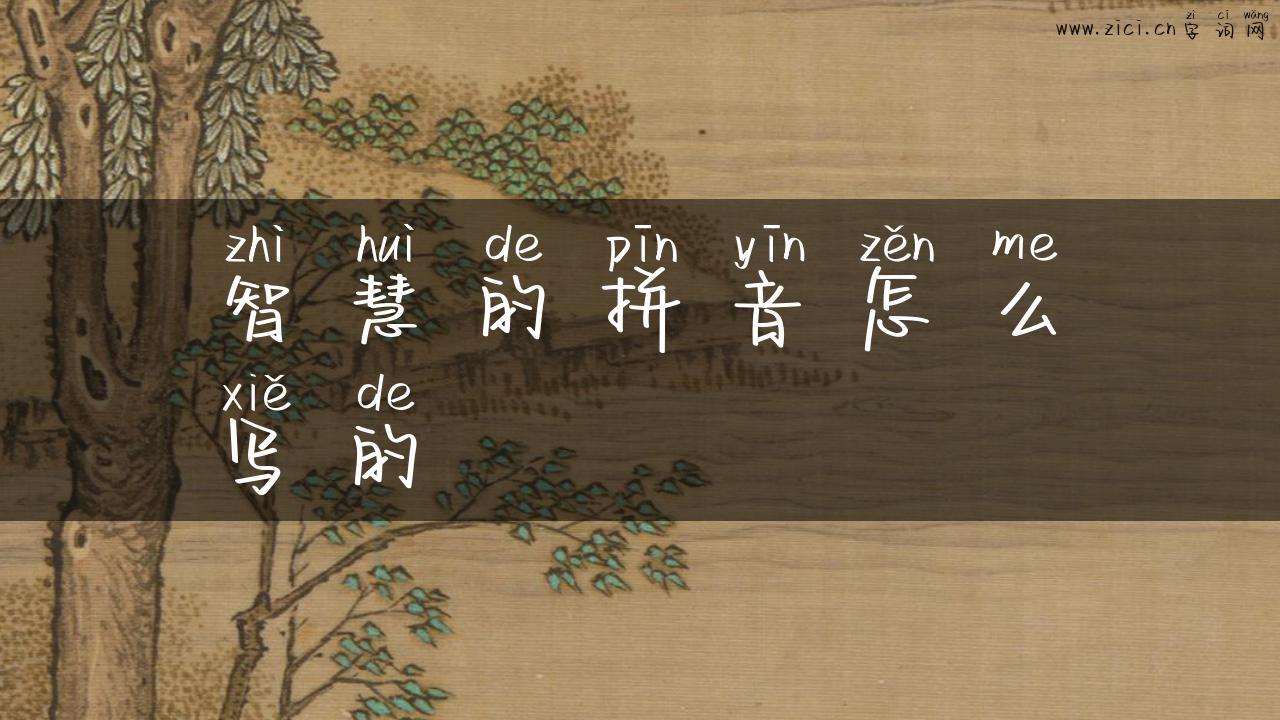 zì cí wǎng
www.zici.cn 字词网
zhì huì de pīn yīn zěn me
智慧的拼音怎么
xiě de
写的